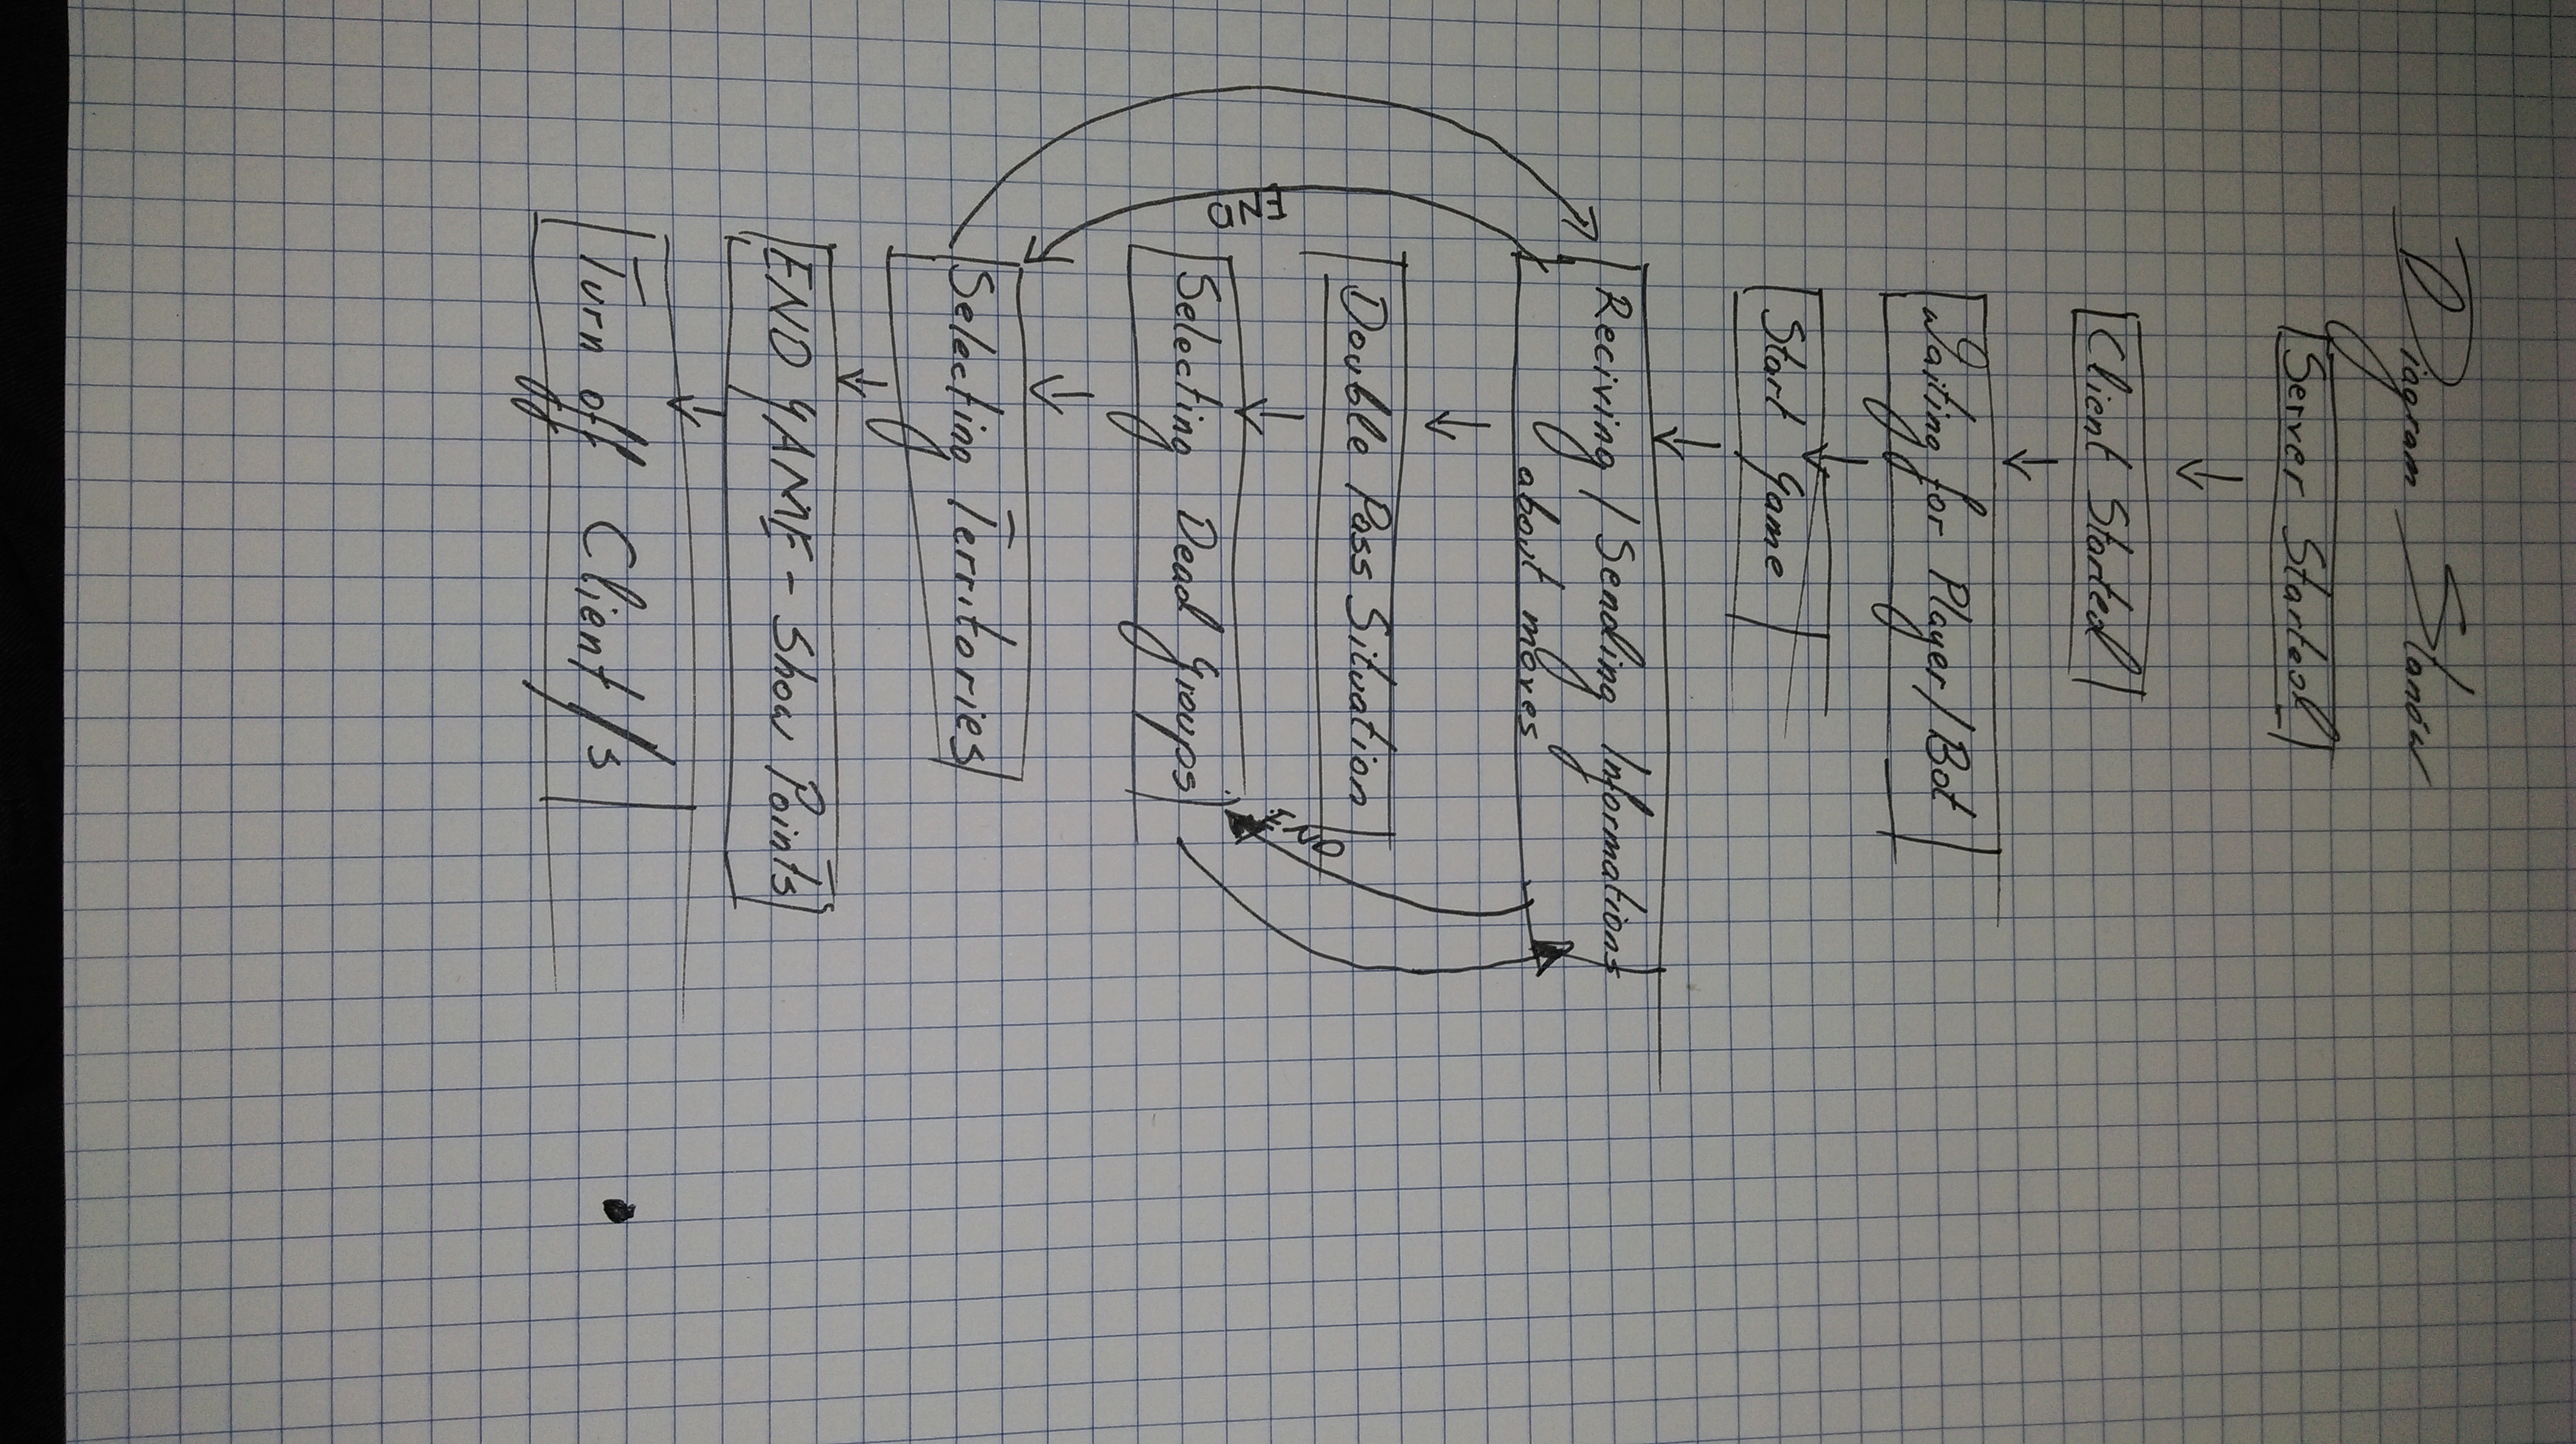 Diagram Stanów
Server Started
Client Started
Waiting for Player/Bot
Start Game
Reciving / Sending Informations
about moves
Double Pass Situation
END
END
Selecting Dead Groups
Selecting Territories
END GAME - Show Points
Turn off Client/s